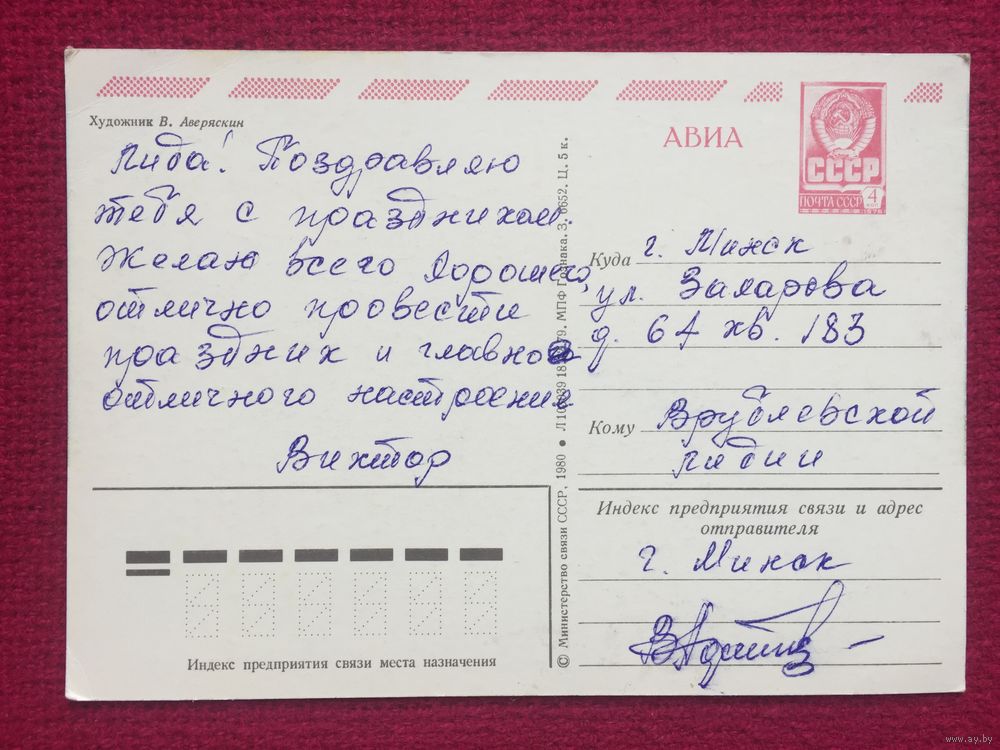 Художник В. Аверяскин
АВИА
СССР
ПОЧТА СССР
4
КОП
Лида! Поздравляю
тебя с праздником.
Желаю всего хорошего,
отлично провести
праздник и главное
отличного настроения
Виктор
© Министерство связи СССР, 1980 ● МПФ Гознака. З. 6652. Ц. 5 к.
Куда г. Минск
ул. Захарова
д. 67 кв. 183
Кому Врублевской
Лидии
Индекс предприятия связи и адрес
отправителя
г. Минск
Индекс предприятия связи места назначения
www.ay.by